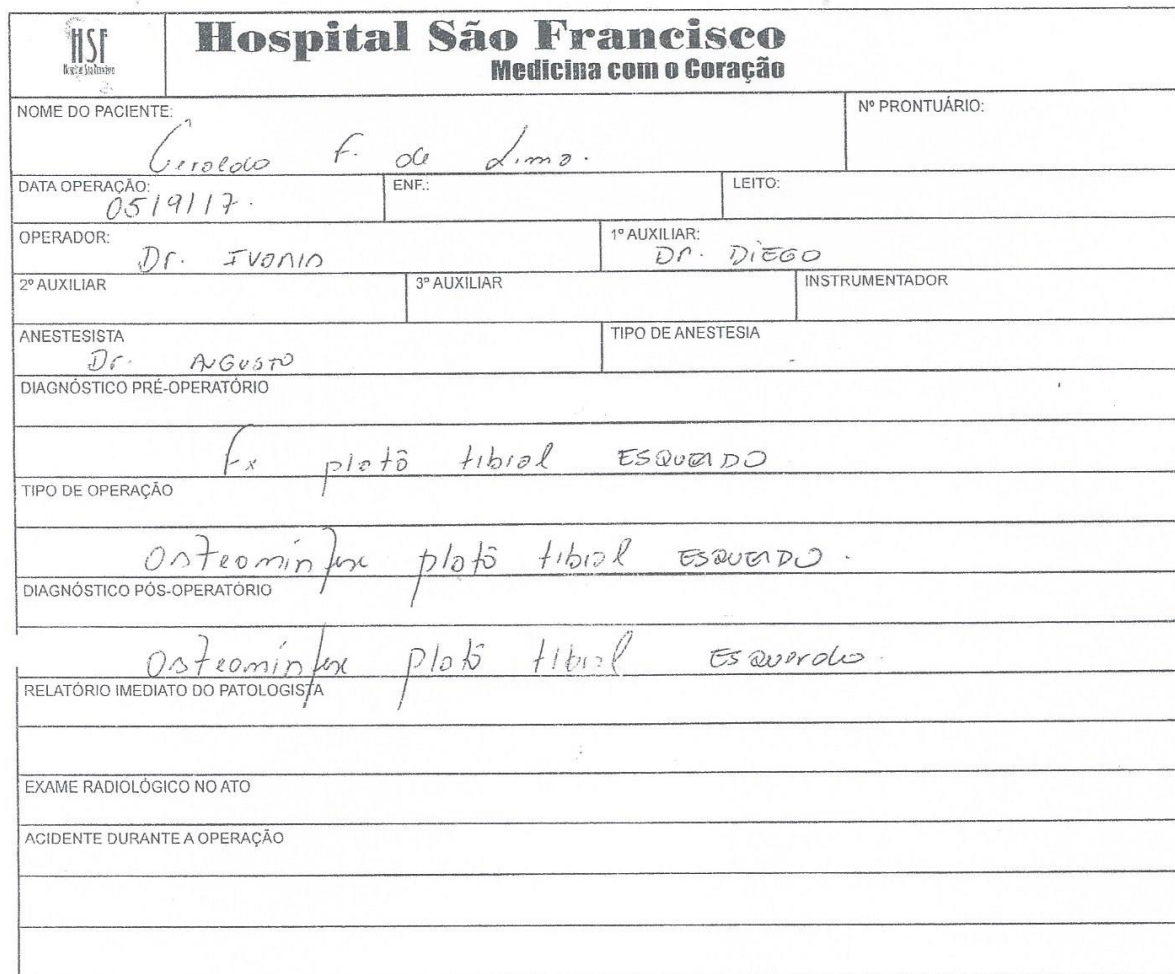 HSF
Hospital São Francisco
Hospital São Francisco
Medicina com o Coração
NOME DO PACIENTE:
Geraldo F. de Lima.
Nº PRONTUÁRIO:
DATA OPERAÇÃO:
05/9/17.
ENF.:
LEITO:
OPERADOR:
Dr. IVANIN
1º AUXILIAR:
Dr. DIEGO
2º AUXILIAR
3º AUXILIAR
INSTRUMENTADOR
ANESTESISTA
Dr. AUGUSTO
TIPO DE ANESTESIA
DIAGNÓSTICO PRÉ-OPERATÓRIO
Fx platô tibial ESQUERDO
TIPO DE OPERAÇÃO
Osteossíntese platô tibial ESQUERDO.
DIAGNÓSTICO PÓS-OPERATÓRIO
Osteossíntese platô tibial Esquerdo.
RELATÓRIO IMEDIATO DO PATOLOGISTA
EXAME RADIOLÓGICO NO ATO
ACIDENTE DURANTE A OPERAÇÃO